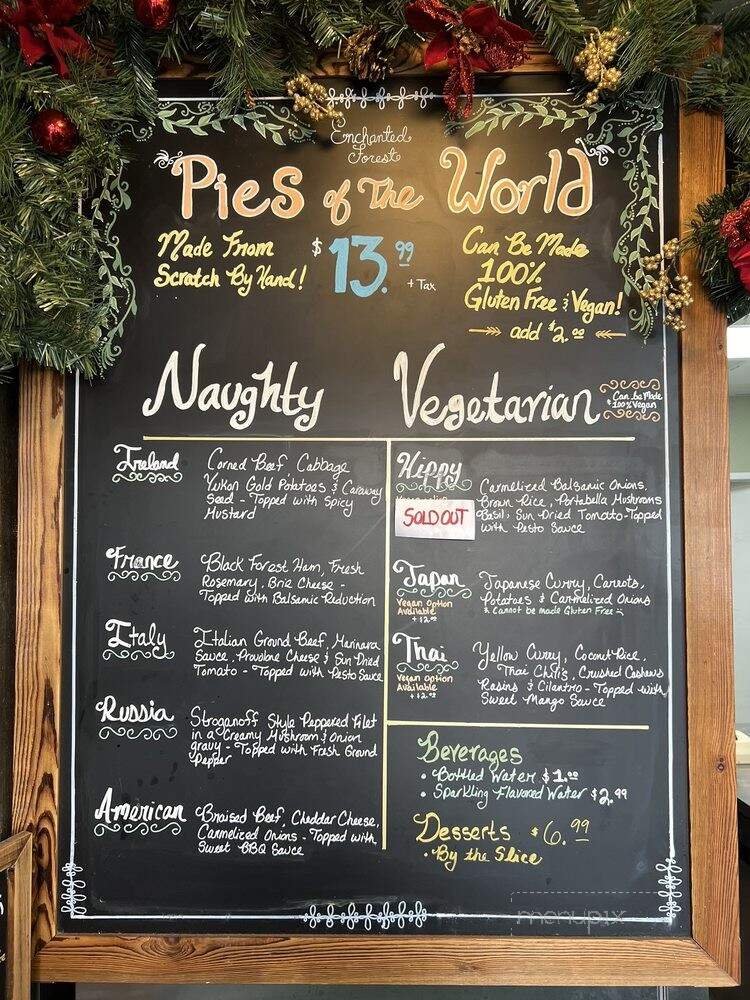 Enchanted
Forest
"Pies of The World"
Made From
Scratch By Hand!
$13.99
+ Tax
Can Be Made
100%
Gluten Free & Vegan!
add $2.00
Naughty
Ireland
Corned Beef, Cabbage
Yukon Gold Potatoes & Caraway
Seed - Topped with Spicy
Mustard
France
Black Forest Ham, Fresh
Rosemary, Brie Cheese -
Topped with Balsamic Reduction
Italy
Italian Ground Beef, Marinara
Sauce, Provolone Cheese & Sun Dried
Tomato - Topped with Pesto Sauce
Russia
Stroganoff Style Peppered Filet
in a Creamy Mushroom & Onion
gravy - Topped with Fresh Ground
Pepper
American
Braised Beef, Cheddar Cheese,
Carmelized Onions - Topped with
Sweet BBQ Sauce
Vegetarian
Can be Made
100% Vegan
Hippy
SOLD OUT
Carmelized Balsamic Onions,
Brown Rice, Portabella Mushrooms
Basil, Sun Dried Tomato - Topped
with Pesto Sauce
Japan
Vegan Option
Available
Japanese Curry, Carrots,
Potatoes & Carmelized Onions
Cannot be made Gluten Free
Thai
Vegan Option
Available
Yellow Curry, Coconut Rice,
Thai Chilis, Crushed Cashews
Rasins & Cilantro - Topped with
Sweet Mango Sauce
Beverages
• Bottled Water $1.00
• Sparkling Flavored Water $2.99
Desserts $6.99
• By the Slice
menupix